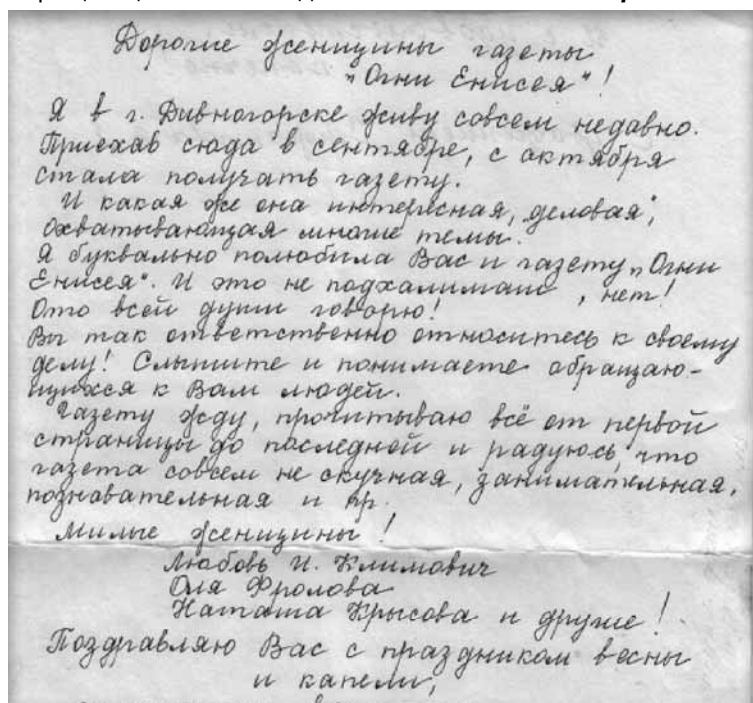 Дорогие женщины газеты
"Огни Енисея"!
Я в г. Дивногорске живу совсем недавно.
Приехав сюда в сентябре, с октября
стала получать газету.
И какая же она интересная, деловая,
охватывающая многие темы.
Я буквально полюбила Вас и газету „Огни
Енисея". И это не подхалимаш, нет!
Ото всей души говорю!
Вы так ответственно относитесь к своему
делу! Слышите и понимаете обращаю-
щихся к Вам людей.
Газету жду, прочитываю всё от первой
страницы до последней и радуюсь, что
газета совсем не скучная, занимательная,
познавательная и пр.
Милые женщины!
Любовь И. Климович
Оля Фролова
Наташа Крысова и другие!
Поздравляю Вас с праздником весны
и капели,